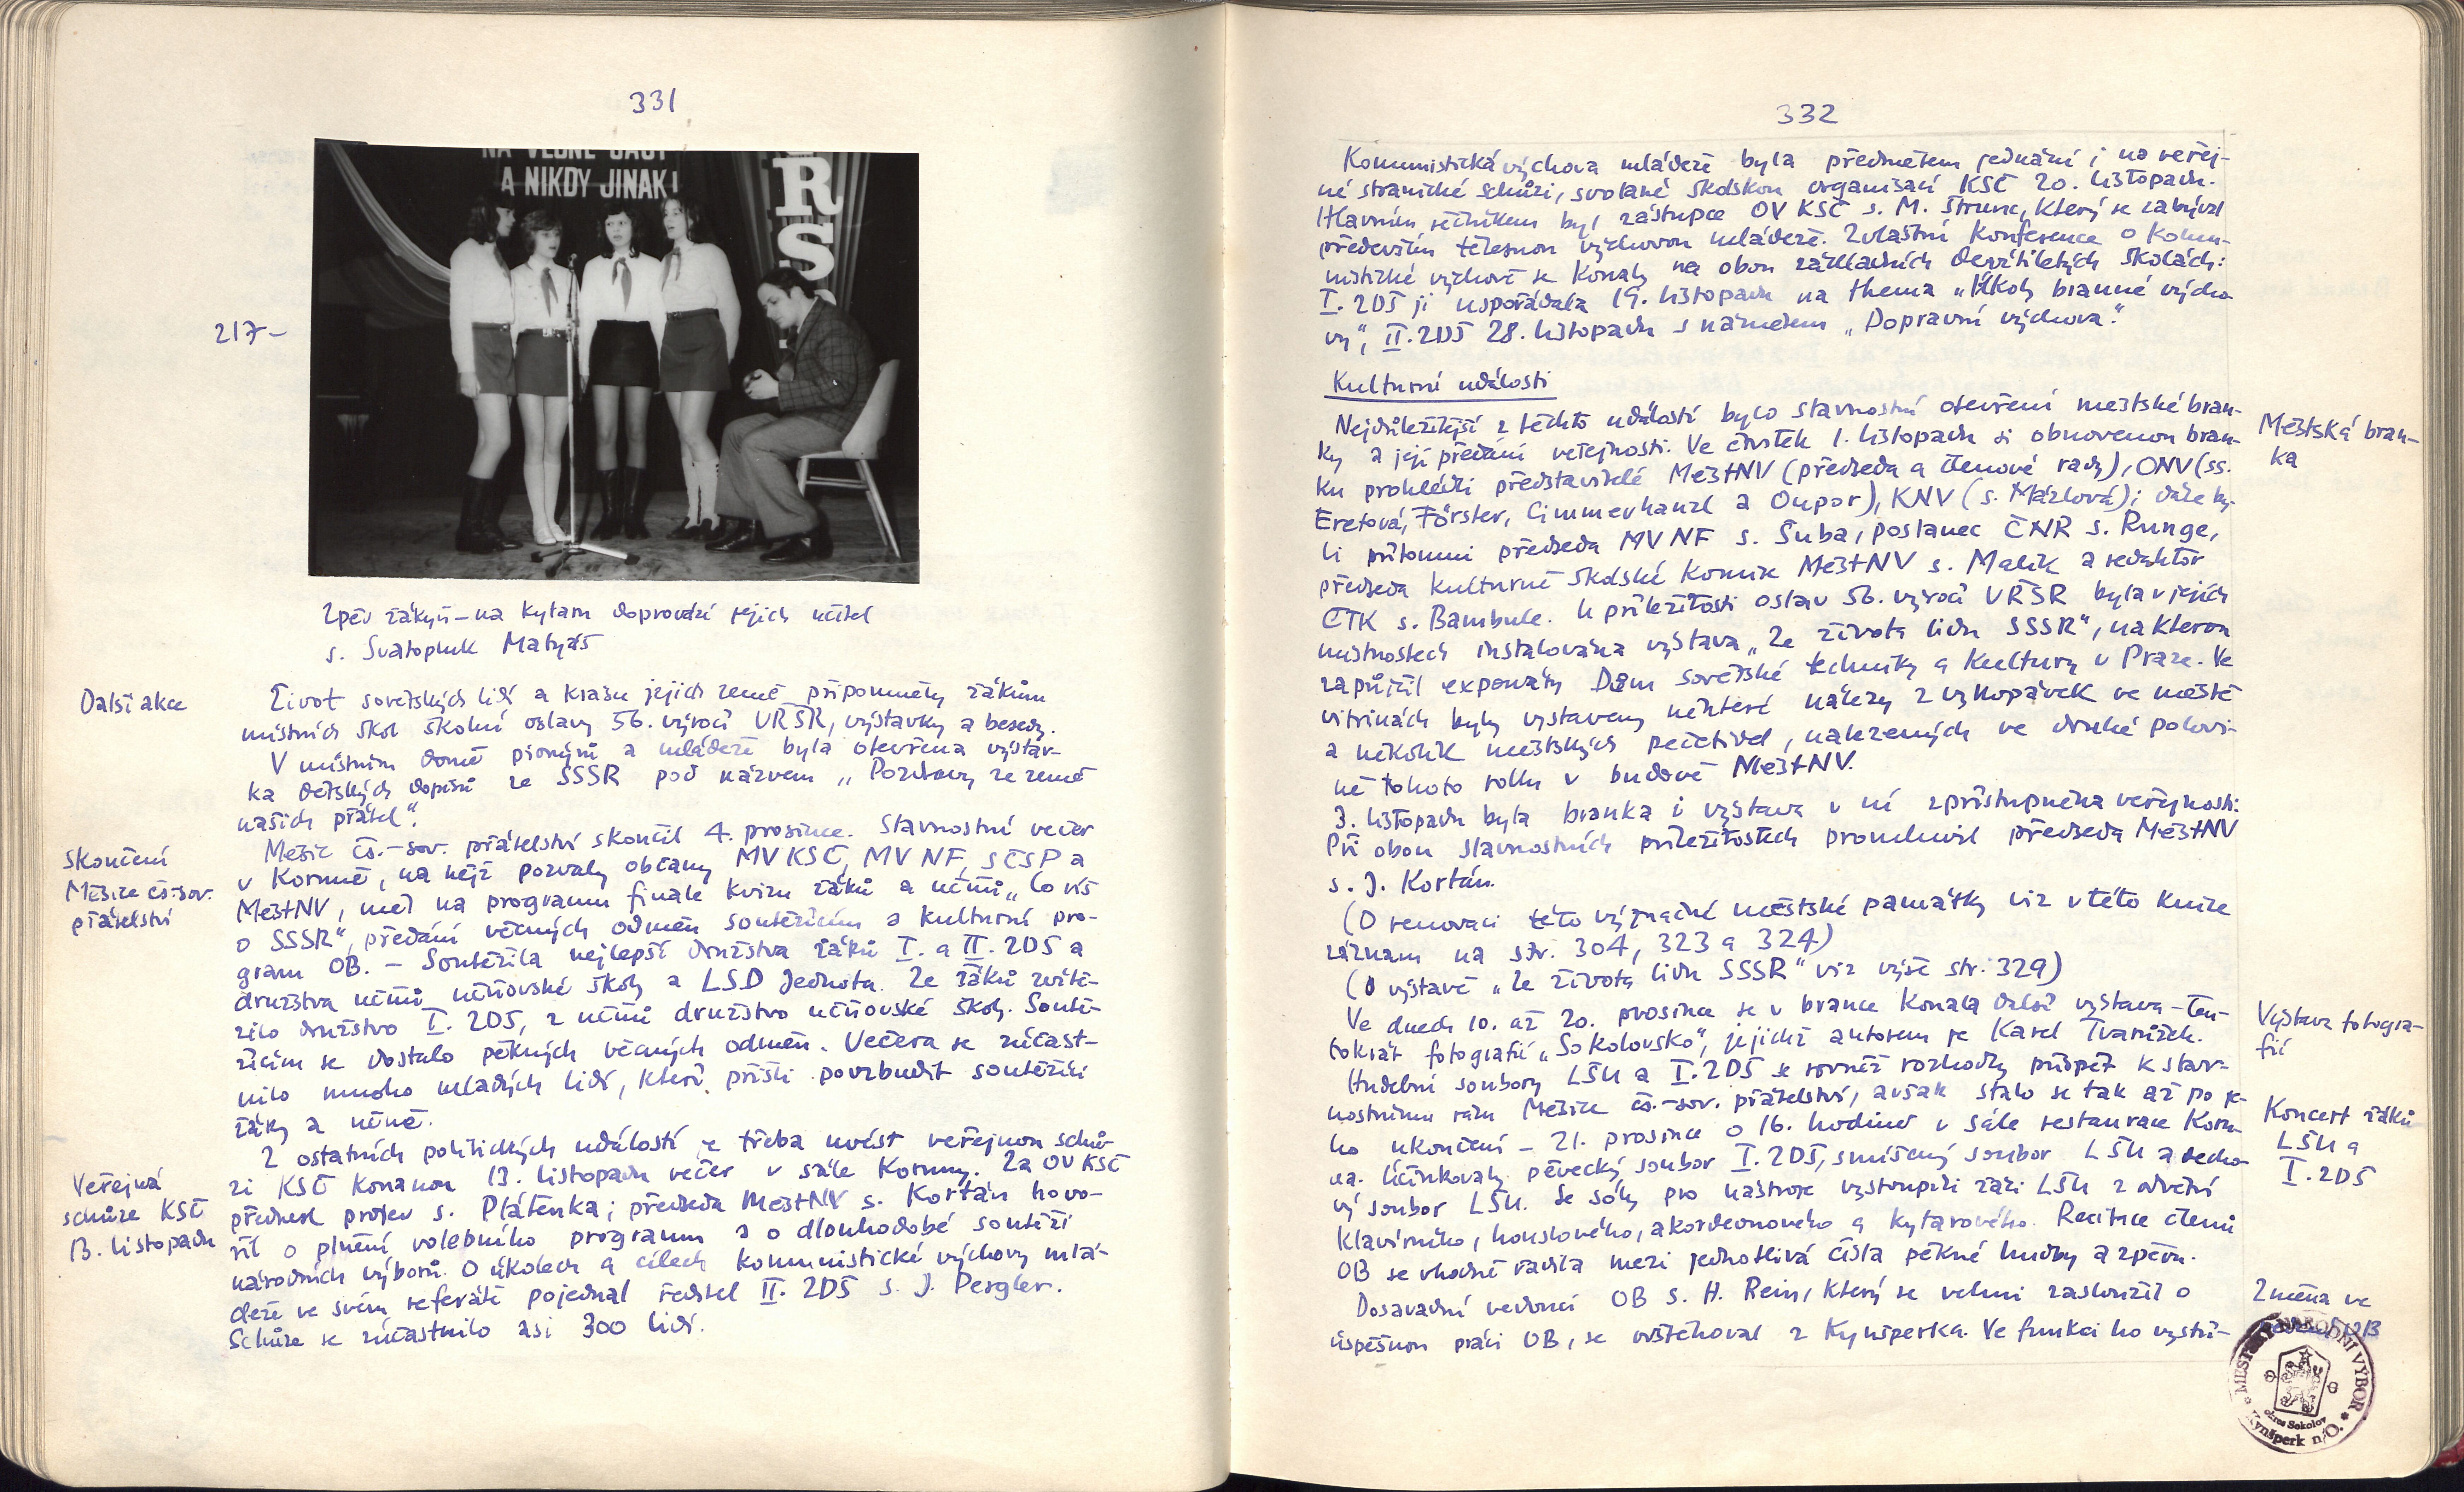 331
NA VĚČNÉ ČASY
A NIKDY JINAK!
R
S
217-
Zpěv žákyň – na kytaru doprovází jejich učitel
s. Svatopluk Matyáš
Další akce
Život sovětských lidí a krásu jejich země připomněly žákům
místních škol školní oslavy 56. výročí VŘSR, výstavky a besedy.
V místním domě pionýrů a mládeže byla otevřena výstav-
ka dětských dopisů ze SSSR pod názvem „Pozdravy ze země
našich přátel".
Skončení
Měsíce čs.-sov.
přátelství
Měsíc čs.-sov. přátelství skončil 4. prosince. Slavnostní večer
v Koruně, na nějž pozvaly občany MV KSČ, MV NF, SČSP a
MěstNV, měl na programu finale kvizu žáků a učňů „Co víš
o SSSR", předání věcných odměn soutěžícím a kulturní pro-
gram OB. – Soutěžila nejlepší družstva žáků I. a II. ZDŠ a
družstva učňů učňovské školy a LSD Jednota. Ze žáků zvítě-
zilo družstvo I. ZDŠ, z učňů družstvo učňovské školy. Soutě-
žícím se dostalo pěkných věcných odměn. Večera se zúčast-
nilo mnoho mladých lidí, kteří přišli povzbudit soutěžící
žáky a učně.
Veřejná
schůze KSČ
13. listopadu
Z ostatních politických událostí je třeba uvést veřejnou schů-
zi KSČ konanou 13. listopadu večer v sále Koruny. Za OV KSČ
přednesl projev s. Plátenka; předseda MěstNV s. Kortán hovo-
řil o plnění volebního programu a o dlouhodobé soutěži
národních výborů. O úkolech a cílech komunistické výchovy mlá-
deže ve svém referátě pojednal ředitel II. ZDŠ s. J. Pergler.
Schůze se zúčastnilo asi 300 lidí.
332
Komunistická výchova mládeže byla předmětem jednání i na veřej-
né stranické schůzi, svolané školskou organisací KSČ 20. listopadu.
Hlavním řečníkem byl zástupce OV KSČ s. M. Štrunc, který se zabýval
především tělesnou výchovou mládeže. Zvláštní konference o komu-
nistické výchově se konaly na obou základních devítiletých školách:
I. ZDŠ ji uspořádala 19. listopadu na thema „Úkoly branné výcho-
vy", II. ZDŠ 28. listopadu s námětem „Dopravní výchova".
Kulturní události
Městská bran-
ka
Nejdůležitější z těchto událostí bylo slavnostní otevření městské bran-
ky a její předání veřejnosti. Ve čtvrtek 1. listopadu si obnovenou bran-
ku prohlédli představitelé MěstNV (předseda a členové rady), ONV (ss.
Eretová, Förster, Cimmerhanzl a Oupor), KNV (s. Mázlová); dále by-
li přítomni předseda MV NF s. Šuba, poslanec ČNR s. Runge,
předseda kulturně školské komise MěstNV s. Malík a redaktor
ČTK s. Bambule. U příležitosti oslav 56. výročí VŘSR byla v jejích
místnostech instalována výstava „Ze života lidu SSSR", na kterou
zapůjčil exponáty Dům sovětské techniky a kultury v Praze. Ve
vitrinách byly vystaveny některé nálezy z vykopávek ve městě
a několik městských pečetidel, nalezených ve druhé polovi-
ně tohoto roku v budově MěstNV.
3. listopadu byla branka i výstava v ní zpřístupněna veřejnosti.
Při obou slavnostních příležitostech promluvil předseda MěstNV
s. J. Kortán.
(O renovaci této význačné městské památky viz v této knize
záznam na str. 304, 323 a 324)
(O výstavě „Ze života lidu SSSR" viz výše str. 329)
Výstava fotogra-
fií
Ve dnech 10. až 20. prosince se v brance konala další výstava – ten-
tokrát fotografií „Sokolovsko", jejichž autorem je Karel Tvarůžek.
Koncert žáků
LŠU a
I. ZDŠ
Hudební soubory LŠU a I. ZDŠ se rovněž rozhodly přispět k slav-
nostnímu rázu Měsíce čs.-sov. přátelství, avšak stalo se tak až po je-
ho ukončení – 21. prosince o 16. hodině v sále restaurace Koru-
na. Účinkovaly pěvecký soubor I. ZDŠ, smíšený soubor LŠU a decho-
vý soubor LŠU. Se sóly pro nástroje vystoupili žáci LŠU z odvětví
klavírního, houslového, akordeonového a kytarového. Recitace členů
OB se vhodně řadila mezi jednotlivá čísla pěkné hudby a zpěvu.
Změna ve
Dosavadní vedoucí OB s. H. Rein, který se velmi zasloužil o
úspěšnou práci OB, se odstěhoval z Kynšperka. Ve funkci ho vystří-
MĚSTSKÝ NÁRODNÍ VÝBOR
okres Sokolov
Kynšperk n/O.